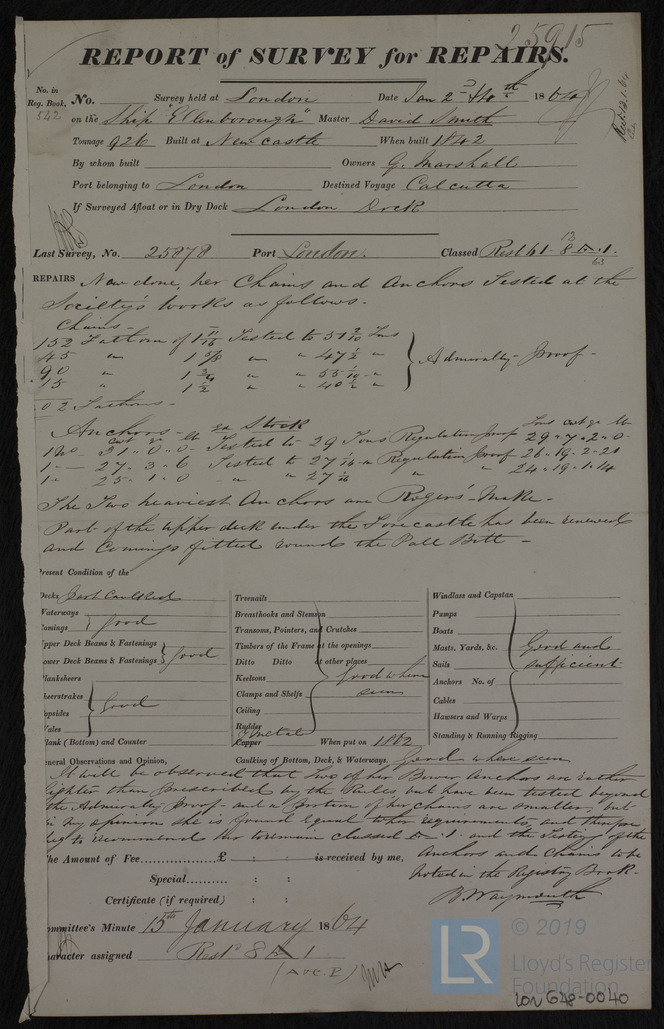 25915
REPORT of SURVEY for REPAIRS.
No. in Reg. Book. No. Survey held at London Date Jan 2 & 11th 1864
542 on the Ship "Ellenborough" Master David Smith
Tonnage 926 Built at Newcastle When built 1842
By whom built Owners G. Marshall
Port belonging to London Destined Voyage Calcutta
If Surveyed Afloat or in Dry Dock London Dock
Last Survey, No. 25878 Port London. Classed Rest 61- 8 Æ.1.
12
63
REPAIRS Now done, her Chains and Anchors Tested at the
Society's Works as follows.
Chains-
152 Fathom of 1 11/16 Tested to 51 2/10 Tons
45 " 1 5/8 " " 47 1/2 "
90 " 1 3/4 " " 55 1/10 "
15 " 1 1/2 " " 40 1/2 "
Admiralty Proof-
02 Fathoms-
Anchors- Ex Stock
cwt qr lb Tons cwt qr lb
1 No. 31-0-0- Tested to 29 Tons Regulation proof 29-7-2-0
1 - 27-3-6 Tested to 27 Regulation Proof 26-19-2-21
1 " 25-1-0 " " 27 " " 24-19-1-14
The Two heaviest Anchors are Rogers' Make-
Part of the upper deck under the Forecastle has been renewed
and Comings fitted round the Pall Bitt-
Present Condition of the
Decks part Caulked
Waterways
Comings good
Upper Deck Beams & Fastenings
Lower Deck Beams & Fastenings good
Planksheers
Sheerstrakes
Topsides good
Wales
Plank (Bottom) and Counter
Treenails
Breasthooks and Stemson
Transoms, Pointers, and Crutches
Timbers of the Frame at the openings
Ditto Ditto at other places
Keelsons good where
Clamps and Shelfs seen
Ceiling
Rudder
Y Metal
Copper When put on 1862
Caulking of Bottom, Deck, & Waterways. Good where seen
Windlass and Capstan
Pumps
Boats
Masts, Yards, &c. Good and
Sails sufficient
Anchors No. of
Cables
Hawsers and Warps
Standing & Running Rigging
General Observations and Opinion,
It will be observed that Two of her Bower Anchors are rather
lighter than prescribed by the Rules, but have been tested beyond
the Admiralty Proof- and a portion of her chains are smaller, but
in my opinion she is found equal to her requirements, and therefore
beg to recommend her to remain classed Æ.1 and the Testing of the
Anchors and Chains to be
noted in the Registry Book-
B. Waymouth
The Amount of Fee £ : : is received by me,
Special : :
Certificate (if required) : :
Committee's Minute 15th January 1864
Character assigned Restd 8 Æ 1
(A & C. P.)
LR
© 2019
Lloyd's Register
Foundation
LON 648-0040